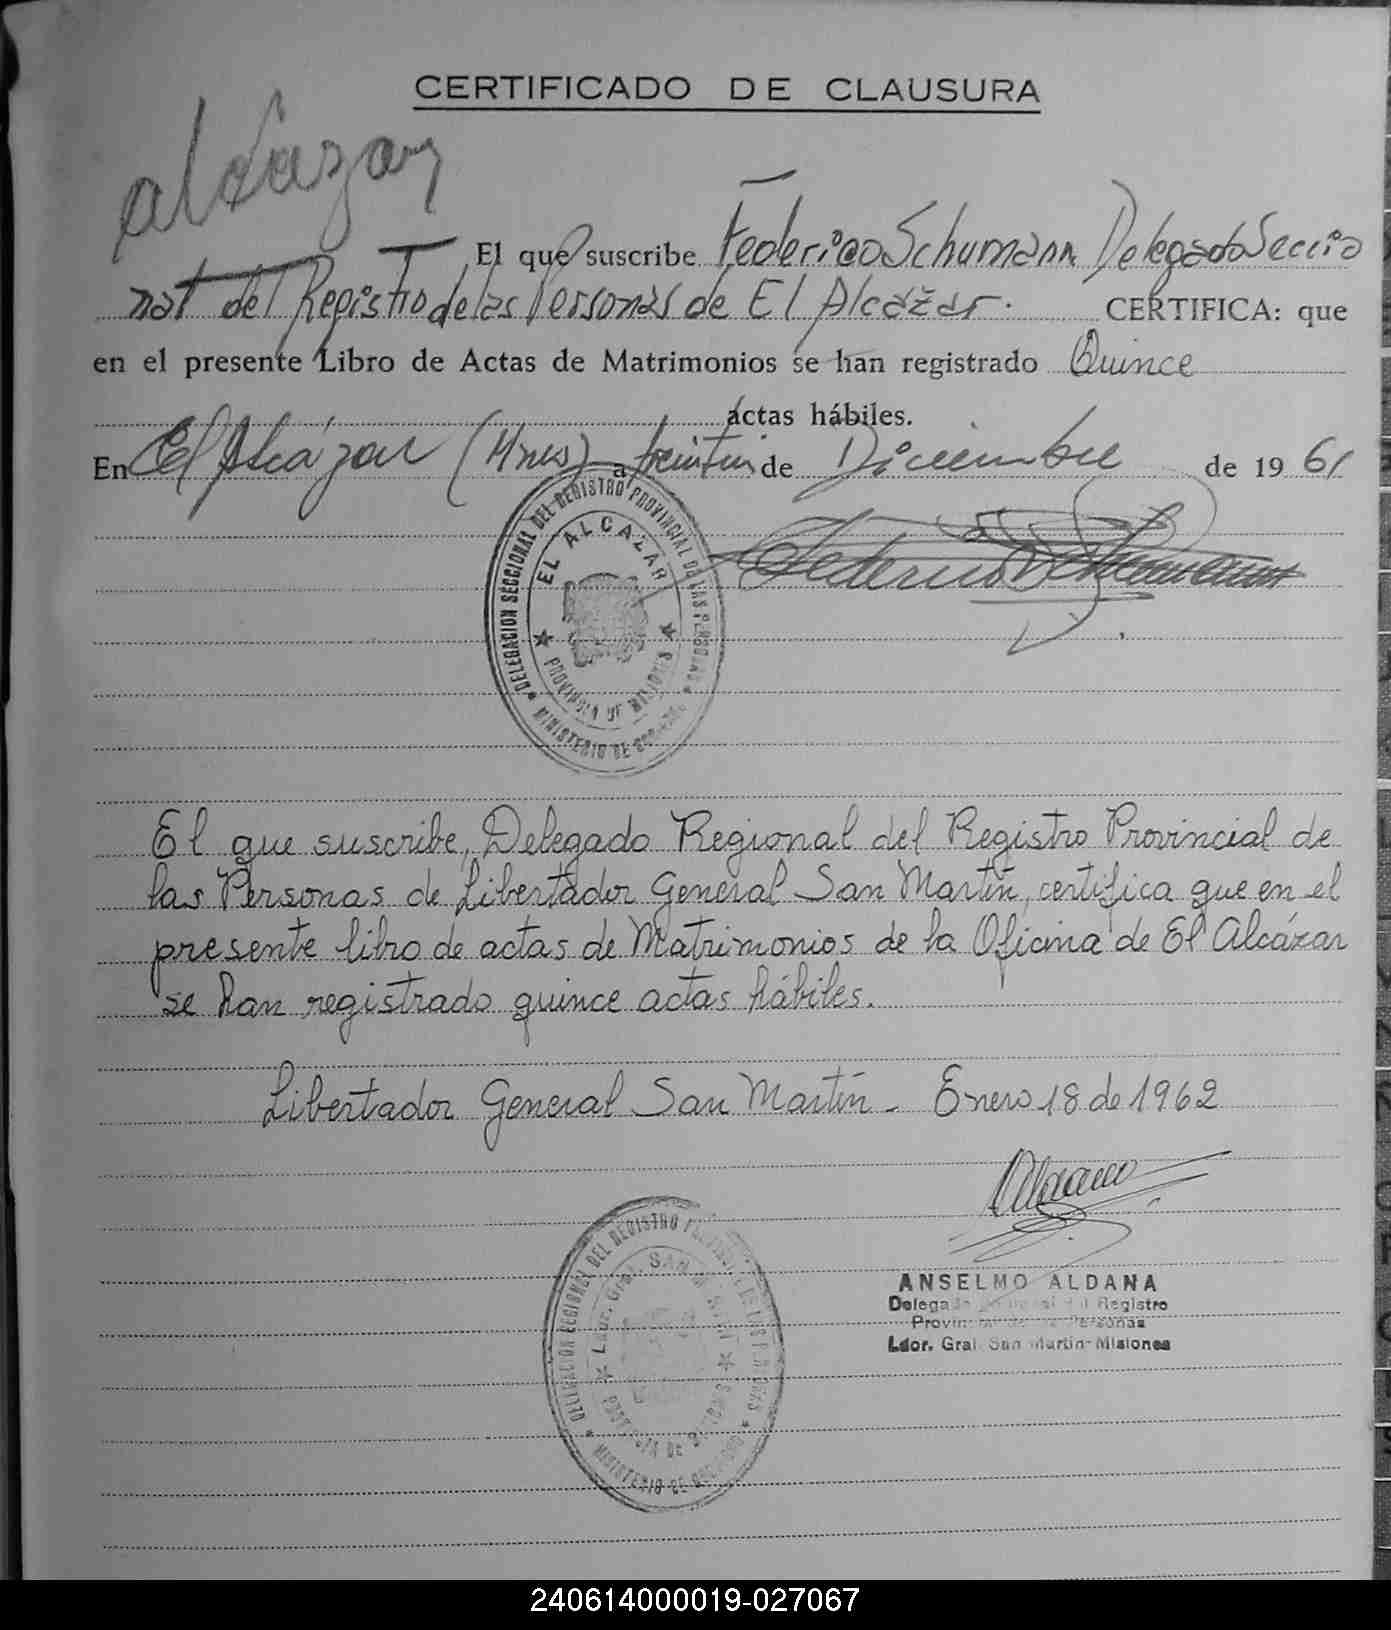 CERTIFICADO DE CLAUSURA
alcázar
El que suscribe Federico Schumann Delegado Seccio
nal del Registro de las Personas de El Alcázar. CERTIFICA: que
en el presente Libro de Actas de Matrimonios se han registrado Quince
actas hábiles.
En El Alcázar (Mnes) a de Diciembre de 19 61
DELEGACION SECCIONAL DEL REGISTRO PROVINCIAL DE LAS PERSONAS
EL ALCAZAR
PROVINCIA DE MISIONES
MINISTERIO DE
Federico Schumann
El que suscribe, Delegado Regional del Registro Provincial de
las Personas de Libertador General San Martín, certifica que en el
presente libro de actas de Matrimonios de la Oficina de El Alcázar
se han registrado quince actas hábiles.
Libertador General San Martín - Enero 18 de 1962
Aldana
ANSELMO ALDANA
Delegado Registro
Provincial de las Personas
Ldor. Gral. San Martin-Misiones
DELEGACION REGIONAL DEL REGISTRO PROVINCIAL DE LAS PERSONAS
Ldor. Gral. SAN MARTIN
PROVINCIA DE MISIONES
MINISTERIO DE GOBIERNO
240614000019-027067